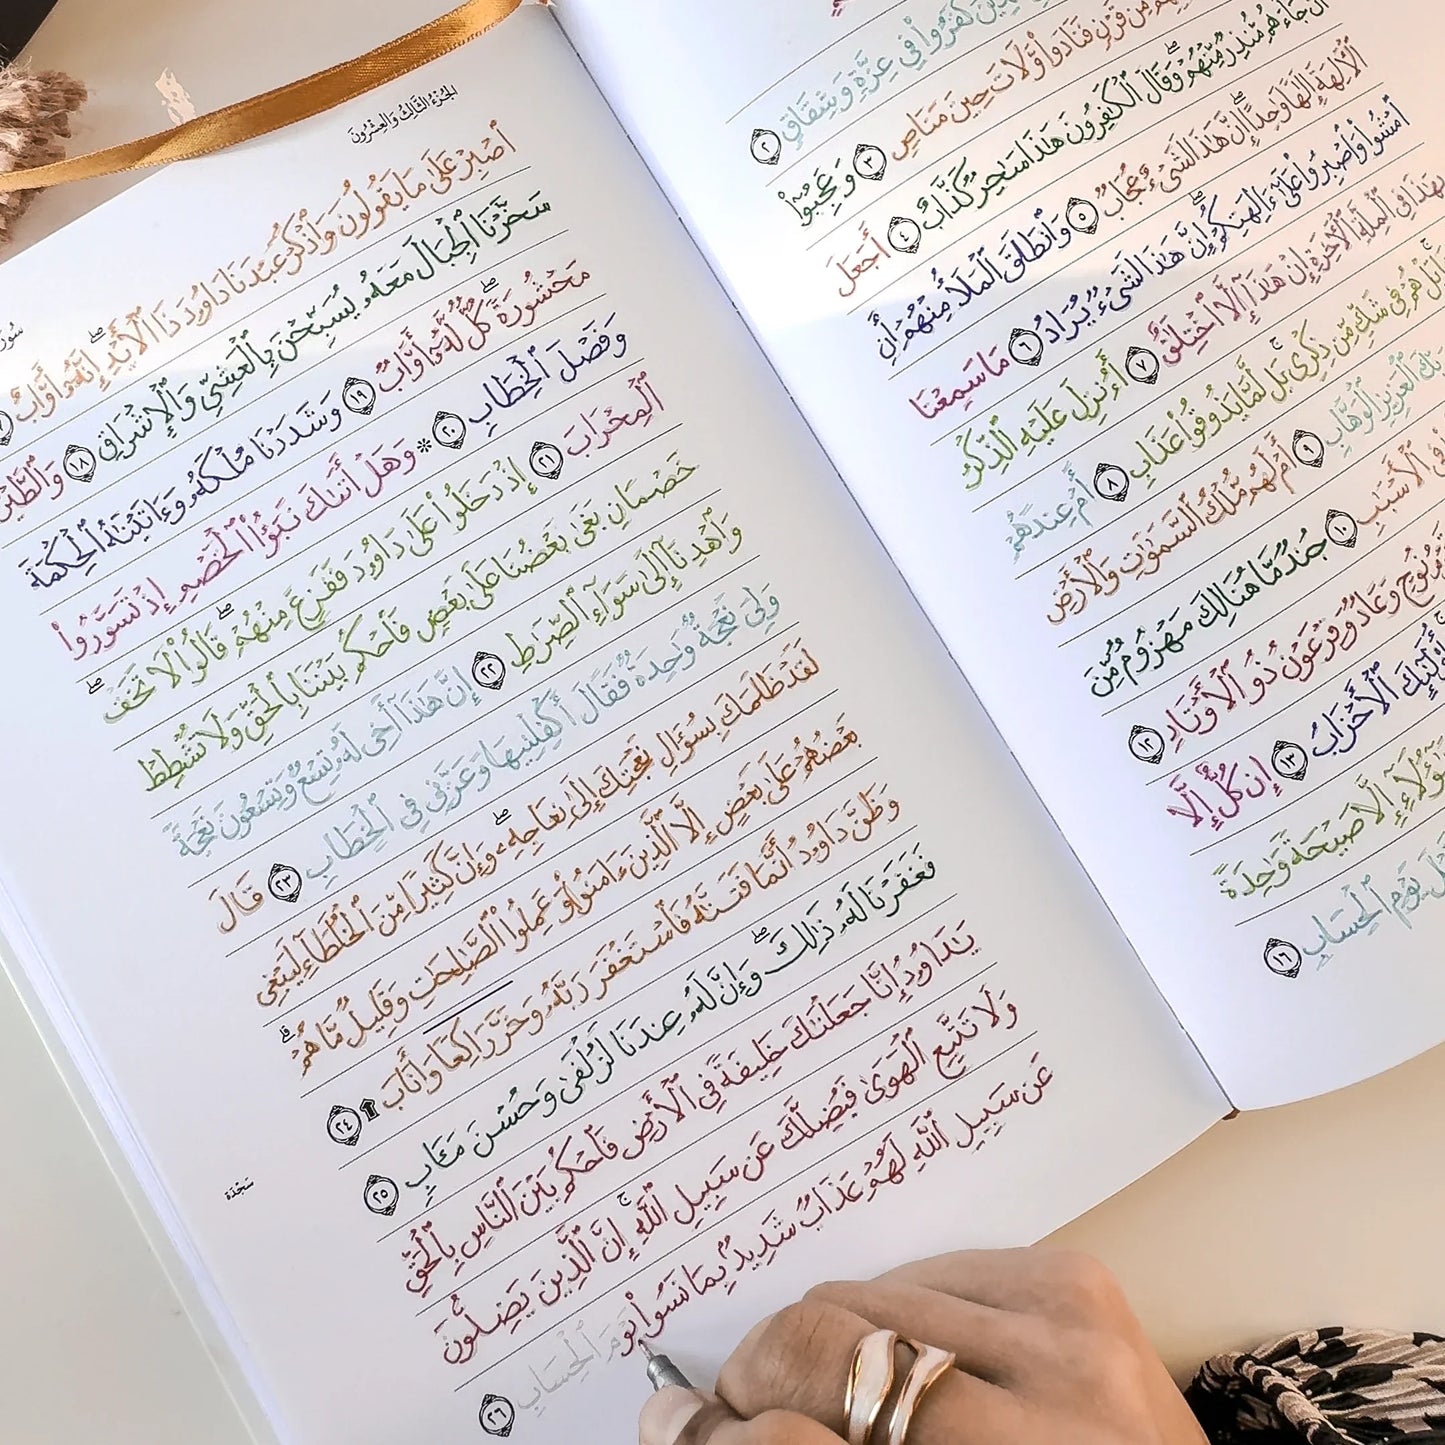 كَفَرُواْ فِي عِزَّةٍ وَشِقَاقٍ ٢
مِّن قَرْنٍ فَنَادَواْ وَّلَاتَ حِينَ مَنَاصٍ ٣ وَعَجِبُوٓاْ
أَن جَآءَهُم مُّنذِرٌ مِّنْهُمْۖ وَقَالَ ٱلْكَٰفِرُونَ هَٰذَا سَٰحِرٌ كَذَّابٌ ٤ أَجَعَلَ
ٱلْأٓلِهَةَ إِلَٰهًا وَٰحِدًاۖ إِنَّ هَٰذَا لَشَيْءٌ عُجَابٌ ٥ وَٱنطَلَقَ ٱلْمَلَأُ مِنْهُمْ أَنِ
ٱمْشُواْ وَٱصْبِرُواْ عَلَىٰٓ ءَالِهَتِكُمْۖ إِنَّ هَٰذَا لَشَيْءٌ يُرَادُ ٦ مَا سَمِعْنَا
بِهَٰذَا فِي ٱلْمِلَّةِ ٱلْأٓخِرَةِ إِنْ هَٰذَآ إِلَّا ٱخْتِلَٰقٌ ٧ أَءُنزِلَ عَلَيْهِ ٱلذِّكْرُ
بَلْ هُمْ فِي شَكٍّ مِّن ذِكْرِيۚ بَل لَّمَّا يَذُوقُواْ عَذَابِ ٨ أَمْ عِندَهُمْ
ٱلْعَزِيزِ ٱلْوَهَّابِ ٩ أَمْ لَهُم مُّلْكُ ٱلسَّمَٰوَٰتِ وَٱلْأَرْضِ
ٱلْأَسْبَٰبِ ١٠ جُندٌ مَّا هُنَالِكَ مَهْزُومٌ مِّنَ
نُوحٍ وَعَادٌ وَفِرْعَوْنُ ذُو ٱلْأَوْتَادِ ١٢
أُوْلَٰٓئِكَ ٱلْأَحْزَابُ ١٣ إِن كُلٌّ إِلَّا
هَٰٓؤُلَآءِ إِلَّا صَيْحَةً وَٰحِدَةً
يَوْمِ ٱلْحِسَابِ ١٦
الجُزْءُ الثَّالِثُ وَالعِشْرُونَ
ٱصْبِرْ عَلَىٰ مَا يَقُولُونَ وَٱذْكُرْ عَبْدَنَا دَاوُۥدَ ذَا ٱلْأَيْدِۖ إِنَّهُۥٓ أَوَّابٌ
سَخَّرْنَا ٱلْجِبَالَ مَعَهُۥ يُسَبِّحْنَ بِٱلْعَشِيِّ وَٱلْإِشْرَاقِ ١٨ وَٱلطَّيْرَ
مَحْشُورَةًۖ كُلٌّ لَّهُۥٓ أَوَّابٌ ١٩ وَشَدَدْنَا مُلْكَهُۥ وَءَاتَيْنَٰهُ ٱلْحِكْمَةَ
وَفَصْلَ ٱلْخِطَابِ ٢٠ * وَهَلْ أَتَىٰكَ نَبَؤُاْ ٱلْخَصْمِ إِذْ تَسَوَّرُواْ
ٱلْمِحْرَابَ ٢١ إِذْ دَخَلُواْ عَلَىٰ دَاوُۥدَ فَفَزِعَ مِنْهُمْۖ قَالُواْ لَا تَخَفْۖ
خَصْمَانِ بَغَىٰ بَعْضُنَا عَلَىٰ بَعْضٍ فَٱحْكُم بَيْنَنَا بِٱلْحَقِّ وَلَا تُشْطِطْ
وَٱهْدِنَآ إِلَىٰ سَوَآءِ ٱلصِّرَٰطِ ٢٢ إِنَّ هَٰذَآ أَخِي لَهُۥ تِسْعٌ وَتِسْعُونَ نَعْجَةً
وَلِيَ نَعْجَةٌ وَٰحِدَةٌ فَقَالَ أَكْفِلْنِيهَا وَعَزَّنِي فِي ٱلْخِطَابِ ٢٣ قَالَ
لَقَدْ ظَلَمَكَ بِسُؤَالِ نَعْجَتِكَ إِلَىٰ نِعَاجِهِۦۖ وَإِنَّ كَثِيرًا مِّنَ ٱلْخُلَطَآءِ لَيَبْغِي
بَعْضُهُمْ عَلَىٰ بَعْضٍ إِلَّا ٱلَّذِينَ ءَامَنُواْ وَعَمِلُواْ ٱلصَّٰلِحَٰتِ وَقَلِيلٌ مَّا هُمْۗ
وَظَنَّ دَاوُۥدُ أَنَّمَا فَتَنَّٰهُ فَٱسْتَغْفَرَ رَبَّهُۥ وَخَرَّ رَاكِعًا وَأَنَابَ ۩ ٢٤
فَغَفَرْنَا لَهُۥ ذَٰلِكَۖ وَإِنَّ لَهُۥ عِندَنَا لَزُلْفَىٰ وَحُسْنَ مَـَٔابٍ ٢٥
سَجْدَة
يَٰدَاوُۥدُ إِنَّا جَعَلْنَٰكَ خَلِيفَةً فِي ٱلْأَرْضِ فَٱحْكُم بَيْنَ ٱلنَّاسِ بِٱلْحَقِّ
وَلَا تَتَّبِعِ ٱلْهَوَىٰ فَيُضِلَّكَ عَن سَبِيلِ ٱللَّهِۚ إِنَّ ٱلَّذِينَ يَضِلُّونَ
عَن سَبِيلِ ٱللَّهِ لَهُمْ عَذَابٌ شَدِيدٌۢ بِمَا نَسُواْ يَوْمَ ٱلْحِسَابِ ٢٦